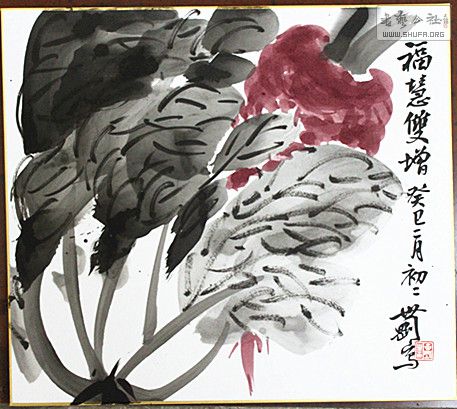 书艺公社
WWW.SHUFA.ORG
福慧雙增 癸巳二月初二